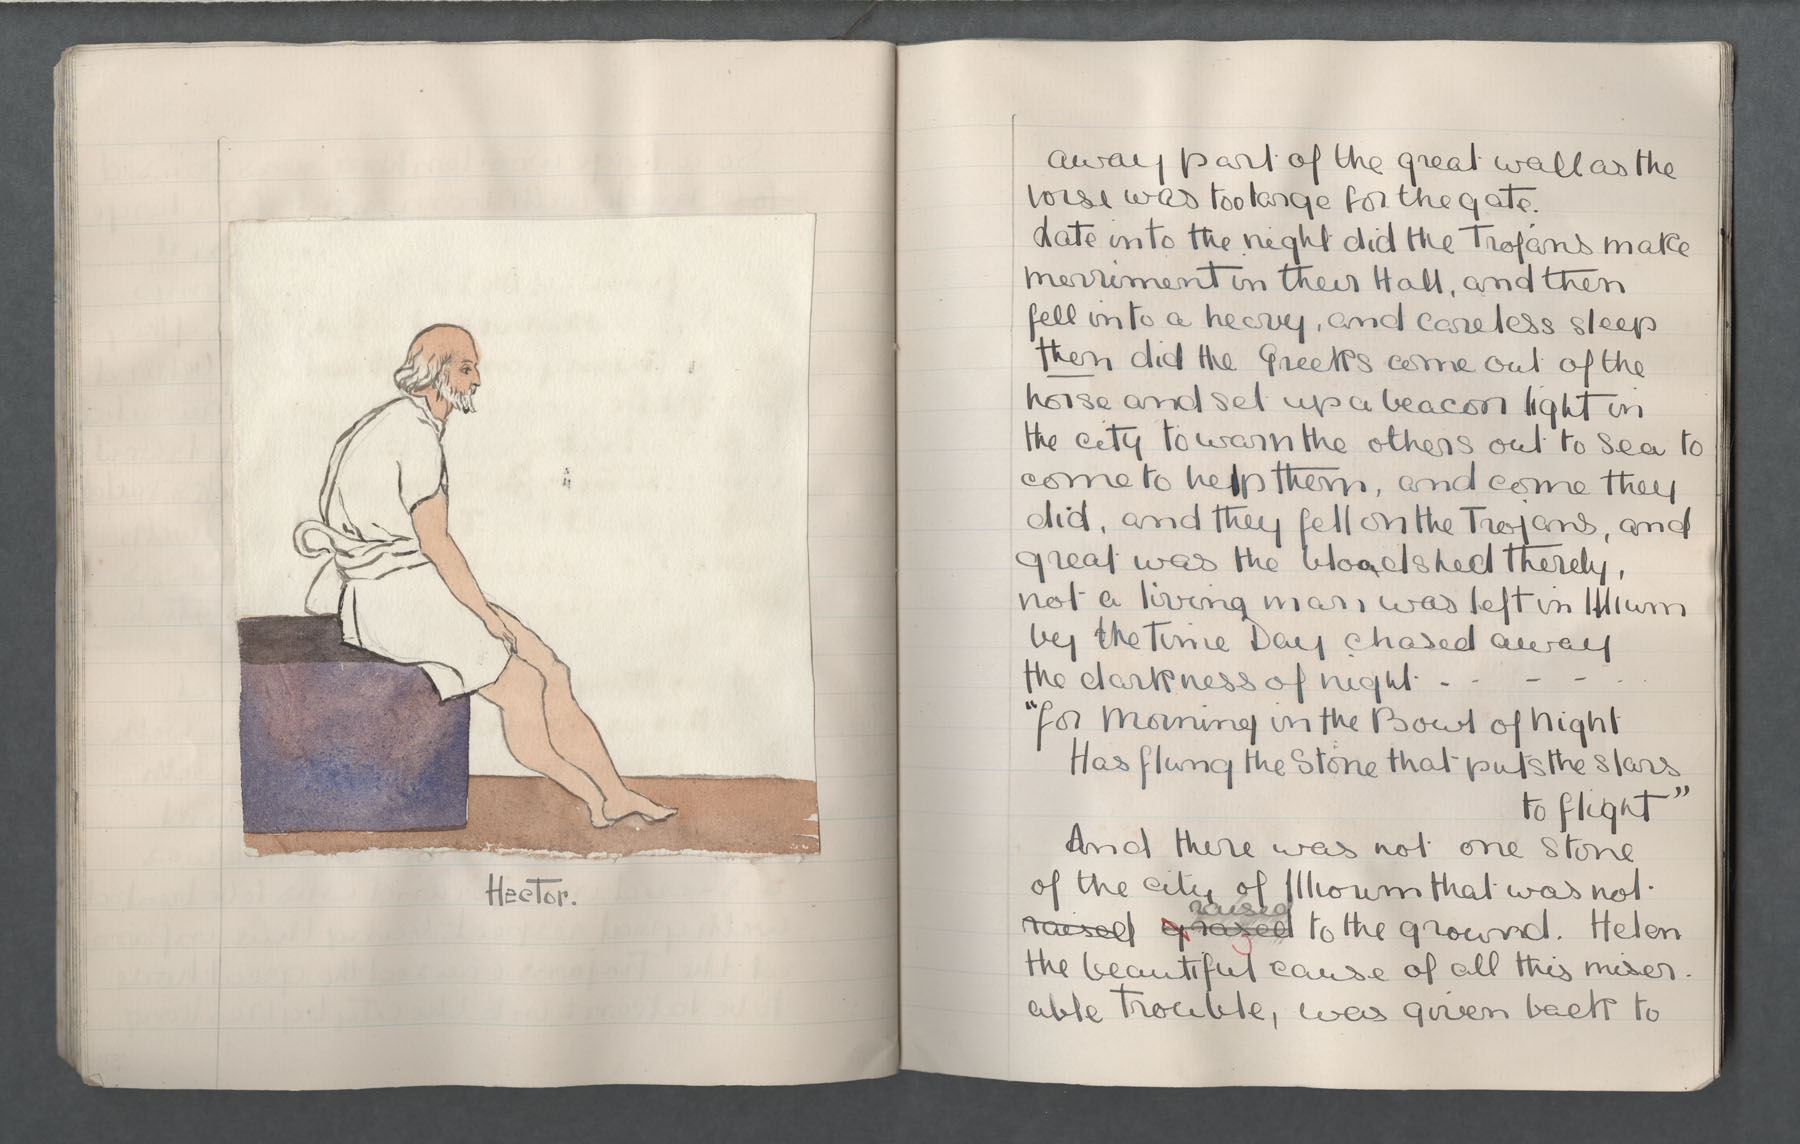 Hector.
away part of the great wall as the
horse was too large for the gate.
Late into the night did the Trojans make
merriment in their Hall, and then
fell into a heavy, and careless sleep
then did the Greeks come out of the
horse and set up a beacon light in
the city to warn the others out to sea to
come to help them, and come they
did, and they fell on the Trojans, and
great was the bloodshed thereby,
not a living man was left in Illium
by the time Day chased away
the darkness of night - - - - - -
"for Morning in the Bowl of Night
Has flung the Stone that puts the stars
to flight"
And there was not one stone
of the city of Illioum that was not
raised
raised grazed to the ground. Helen
the beautiful cause of all this miser-
able trouble, was given back to